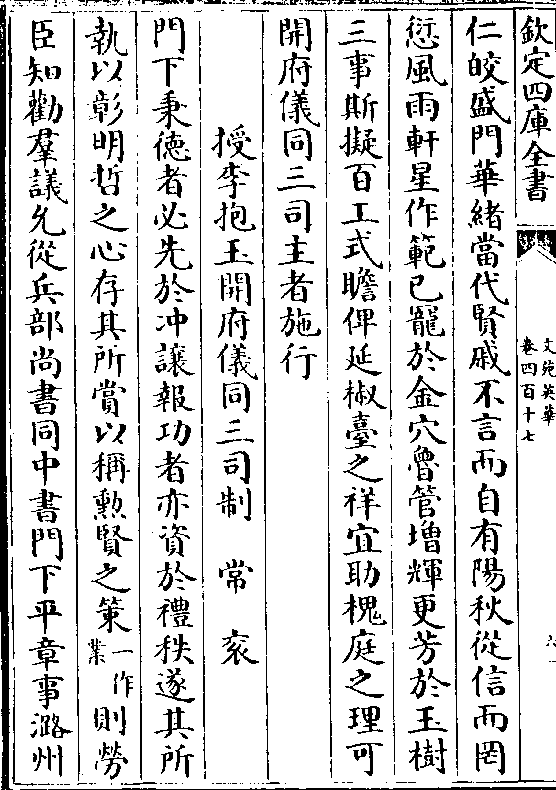 欽定四庫全書
文苑英華
卷四百十七
仁皎盛門華緒當代賢戚不言而自有陽秋從信而罔
愆風雨軒星作範已寵於金穴魯管增輝更芳於玉樹
三事斯擬百工式瞻俾延椒臺之祥宜助槐庭之理可
開府儀同三司主者施行
授李抱玉開府儀同三司制 常衮
門下秉徳者必先於冲讓報功者亦資於禮秩遂其所
執以彰明哲之心存其所賞以稱勲賢之策一作業則勞
臣知勸羣議允從兵部尚書同中書門下平章事潞州